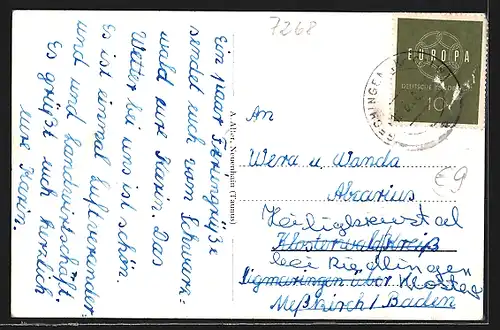 7268
Ein paar Feriengrüße
sendet euch vom Schwarz=
wald eure Karin. Das
Wetter bei uns ist schön.
Es ist einmal Luftveränder
und und Landwirtschaft.
Es grüßt euch herzlich
eure Karin.
A. Aller, Neuenhain (Taunus)
EUROPA
DEUTSCHE BUNDESPOST
10
An
Wera u. Wanda
Abcarius
Heiligkreuztal
Klosterwald/Kreiß
bei Riedlingen
Sigmaringen über Kloster
Meßkirch / Baden
€9